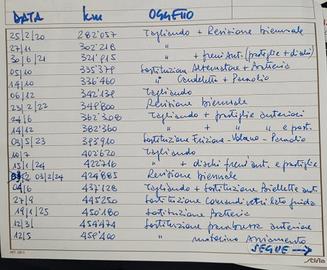 DATA km OGGETTO
25/2/20 282'057 Tagliando + Revisione biennale
27/11 302'218 "
30/6/21 321'915 " + freni Ant. (pastiglie + dischi)
05/10 335'378 Sostituzione Alternatore + Batteria
14/10 336'460 " Candelette + Pancolio
06/12 342'139 Tagliando
23/2/22 349'800 Revisione biennale
24/6 362'308 Tagliando + pastiglie anteriori
14/12 382'360 " + " " e post.
03/5/23 393'910 Sostituzione Frizione - Volano -
10/7 402'620 Tagliando
15/1/24 422'716 " + dischi freni ant. e pastiglie
2/24 424'885 Revisione biennale
04/6 437'128 Tagliando + Sostituzione Biellette ant.
27/9 445'250 Sostituzione Comandi vetri lato guida
19/1/25 450'180 Sostituzione Batteria
12/3/ 454'474 Sostituzione parabrezza anteriore
12/5 459'400 " motorino Avviamento
SEGUE →